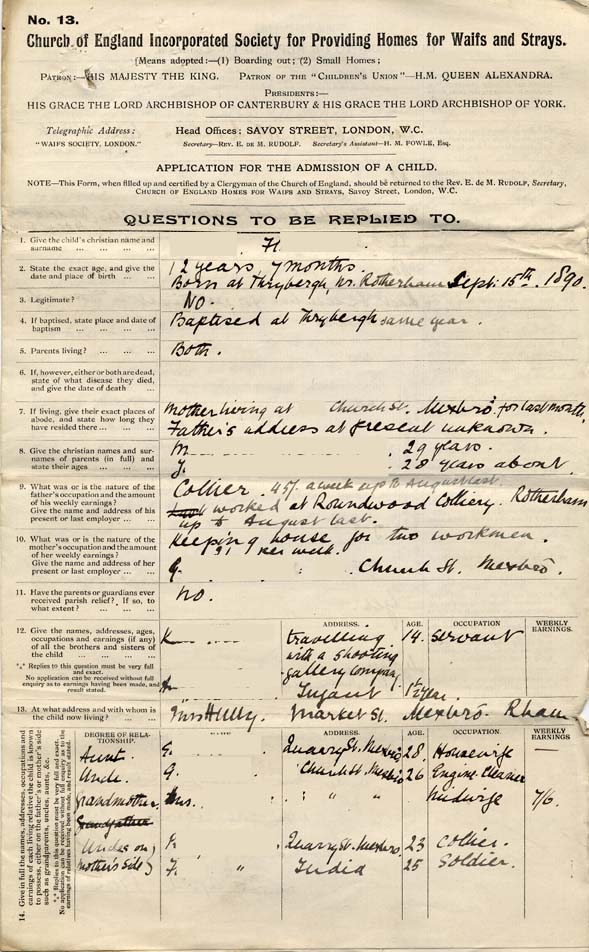 No. 13.
Church of England Incorporated Society for Providing Homes for Waifs and Strays.
(Means adopted:—(1) Boarding out; (2) Small Homes;
PATRON:—HIS MAJESTY THE KING. PATRON OF THE "CHILDREN'S UNION"—H.M. QUEEN ALEXANDRA.
PRESIDENTS:—
HIS GRACE THE LORD ARCHBISHOP OF CANTERBURY & HIS GRACE THE LORD ARCHBISHOP OF YORK.
Telegraphic Address: Head Offices: SAVOY STREET, LONDON, W.C.
"WAIFS SOCIETY, LONDON." Secretary—REV. E. DE M. RUDOLF. Secretary's Assistant—H. M. FOWLE, Esq.
APPLICATION FOR THE ADMISSION OF A CHILD.
NOTE—This Form, when filled up and certified by a Clergyman of the Church of England, should be returned to the Rev. E. de M. RUDOLF, Secretary,
CHURCH OF ENGLAND HOMES FOR WAIFS AND STRAYS, Savoy Street, London, W.C.
QUESTIONS TO BE REPLIED TO.
1. Give the child's christian name and
surname ... ... ... ...
H.
2. State the exact age, and give the
date and place of birth ... ...
12 years 7 months.
Born at Thrybergh, nr. Rotherham Sept: 15th. 1890.
3. Legitimate? ... ... ...
NO.
4. If baptised, state place and date of
baptism ... ... ... ...
Baptised at Thrybergh same year.
5. Parents living? ... ... ...
Both.
6. If, however, either or both are dead,
state of what disease they died,
and give the date of death ...
7. If living, give their exact places of
abode, and state how long they
have resided there ... ... ...
Mother living at Church St. Mexbro' for last month,
Father's address at present unknown.
8. Give the christian names and sur-
names of parents (in full) and
state their ages ... ... ...
M 29 years.
J. 28 years about.
9. What was or is the nature of the
father's occupation and the amount
of his weekly earnings?
Give the name and address of his
present or last employer ... ...
Collier. 45/. a week up to August last.
worked at Roundwood Colliery. Rotherham
up to August last.
10. What was or is the nature of the
mother's occupation and the amount
of her weekly earnings?
Give the name and address of her
present or last employer ... ...
Keeping house for two workmen.
per week.
G. Church St. Mexbro.
11. Have the parents or guardians ever
received parish relief? If so, to
what extent? ... ... ...
No.
12. Give the names, addresses, ages,
occupations and earnings (if any)
of all the brothers and sisters of
the child ... ... ... ...
*** Replies to this question must be very full
and exact.
No application can be received without full
enquiry as to earnings having been made, and
result stated.
ADDRESS. AGE. OCCUPATION WEEKLY EARNINGS.
K travelling 14. Servant
with a shooting
gallery company
Infant 1½ year.
13. At what address and with whom is
the child now living? ... ...
Mrs H Market St. Mexbro. Rham
14. Give in full the names, addresses, occupations and
earnings of each living relative the child is known
to possess, either on the father's or mother's side
such as grandparents, uncles, aunts, &c.
*** Replies to this question must be very full and exact.
No application can be received without full enquiry as to the
earnings of relatives having been made, and result stated.
DEGREE OF RELA-
TIONSHIP. ADDRESS. AGE. OCCUPATION WEEKLY
EARNINGS
Aunt. G. Quarry St. Mexbro 28. Housewife
Uncle. G. Church St. Mexbro 26 Engine Cleaner
Grandmother Mrs. " " Midwife 7/6.
Grandfather
Uncles on Quarry St. Mexbro. 23 Collier.
mother's side F. " India 25 Soldier.